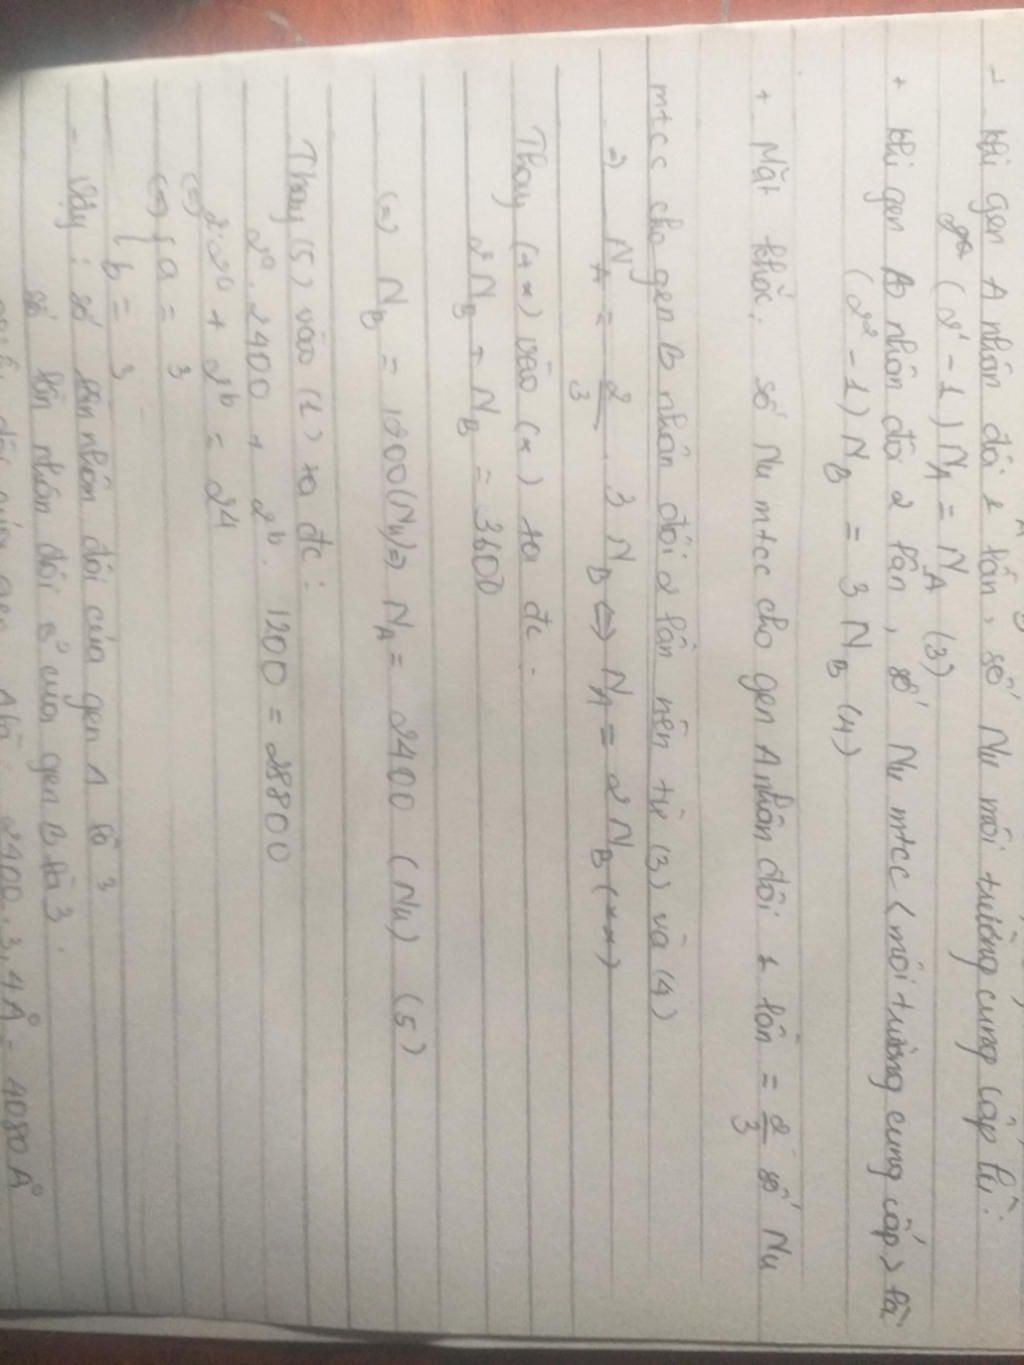 - Khi gen A nhân đôi 1 lần, số Nu môi trường cung cấp là:
(2¹ - 1) N_A = N_A (3)
+ Khi gen B nhân đôi 2 lần, số Nu mtcc (môi trường cung cấp) là
(2² - 1) N_B = 3 N_B (4)
+ Mặt khác, số Nu mtcc cho gen A nhân đôi 1 lần = 2/3 số Nu
mtcc cho gen B nhân đôi 2 lần nên từ (3) và (4)
=) N_A = 2/3 . 3 N_B <=> N_A = 2 N_B (**)
Thay (**) vào (*) ta đc:
2 N_B + N_B = 3600
(=) N_B = 1200 (Nu) => N_A = 2400 (Nu) (5)
Thay (5) vào (1) ta đc:
2ᵃ . 2400 + 2ᵇ . 1200 = 28800
(=) 2.2ᵃ + 2ᵇ = 24
(=) { a = 3
b = 3
- Vậy: số lần nhân đôi của gen A là 3
số lần nhân đôi của gen B là 3.
gen A là: 2400 . 3,4 A° = 4080 A°